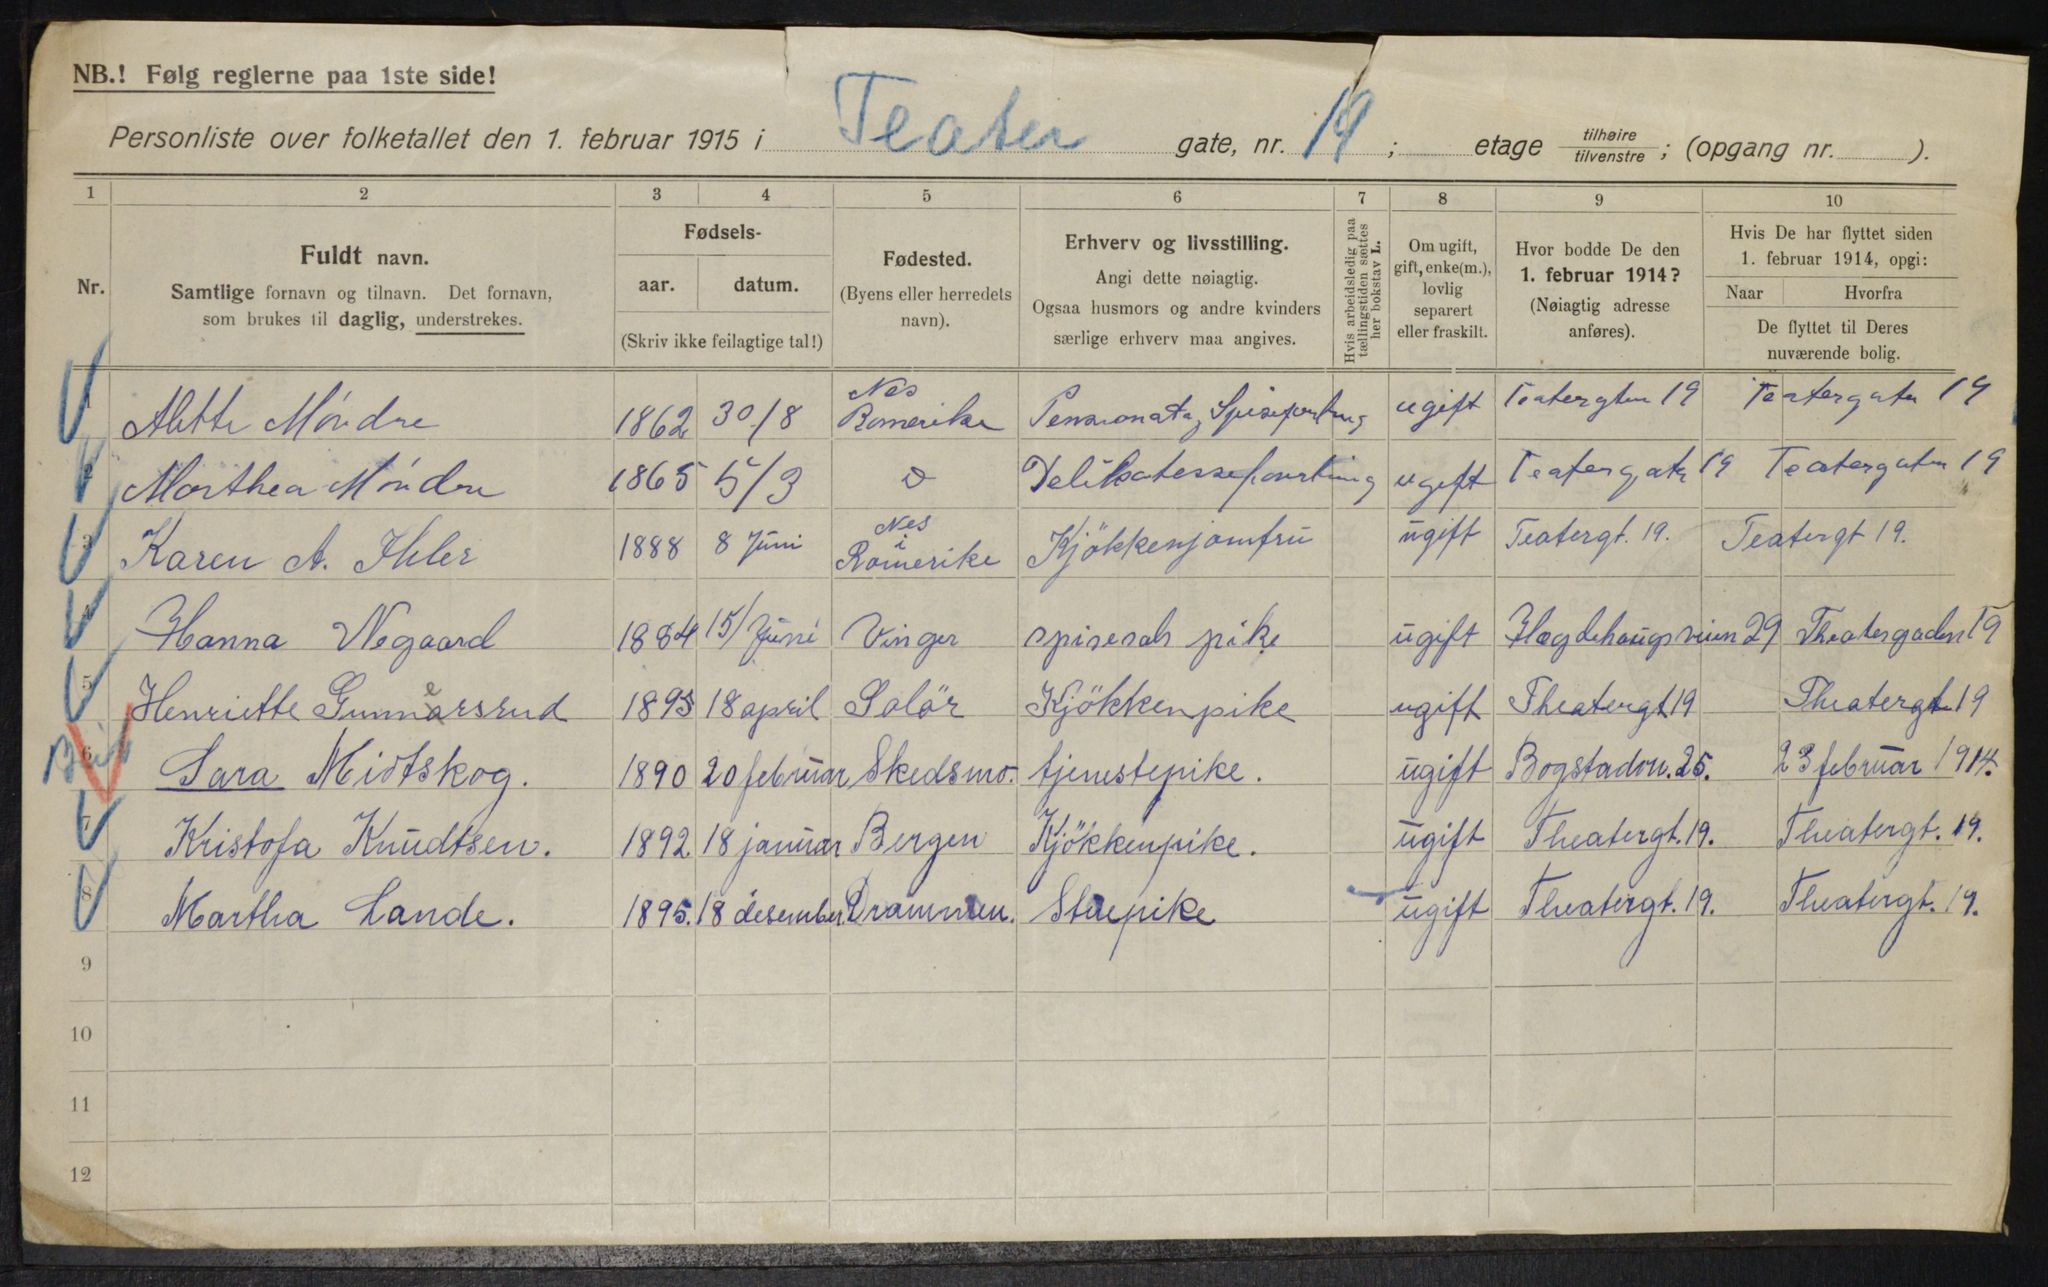 NB.! Følg reglerne paa 1ste side!
Personliste over folketallet den 1. februar 1915 i Teater gate, nr. 19; etage tilhøire tilvenstre; (opgang nr. ).
1 2 3 4 5 6 7 8 9 10
Nr.
Fuldt navn.
Samtlige fornavn og tilnavn. Det fornavn,
som brukes til daglig, understrekes.
Fødsels-
aar. datum.
(Skriv ikke feilagtige tal!)
Fødested.
(Byens eller herredets
navn).
Erhverv og livsstilling.
Angi dette nøiagtig.
Ogsaa husmors og andre kvinders
særlige erhverv maa angives.
Hvis arbeidsledig paa
tællingstiden sættes
her bokstav L.
Om ugift,
gift, enke(m.),
lovlig
separert
eller fraskilt.
Hvor bodde De den
1. februar 1914?
(Nøiagtig adresse
anføres).
Hvis De har flyttet siden
1. februar 1914, opgi:
Naar Hvorfra
De flyttet til Deres
nuværende bolig.
1 Alette Møndre 1862 30/8 Nes Romerike Pensionat, ugift Teatergten 19 Teatergaten 19
2 Marthea Møndre 1865 5/3 Delikatesseforretning ugift Teatergata 19 Teatergaten 19
3 Karen A. Ihler 1888 8 Juni Nes i Romerike Kjökkenjomfru ugift Teatergt. 19. Teatergt 19.
4 Hanna Negaard 1884 15/Juni Vinger spisesals pike ugift Hægdehaugsveien 29 Theatergaden 19
5 Henriette Gunnersrud 1893 18 april Solör Kjökkenpike ugift Theatergt 19 Theatergt 19
6 Sara Midtskog. 1890 20 februar Skedsmo. tjenestepike. ugift Bogstadvn. 25. 23 februar 1914.
7 Kristofa Knudtsen. 1892. 18 januar Bergen Kjökkenpike. ugift Theatergt. 19. Theatergt. 19.
8 Martha Lande. 1895. 18 desember. Drammen. Stuepike ugift Theatergt. 19. Theatergt. 19.
9
10
11
12